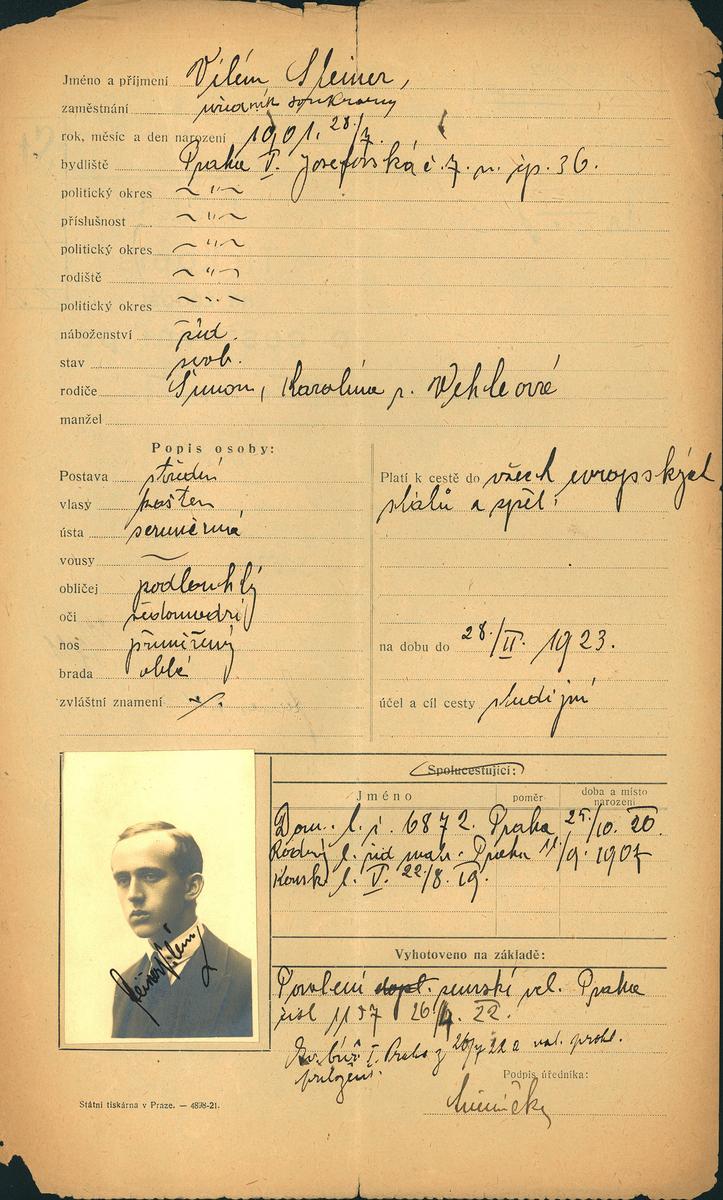 Jméno a příjmení Vilém Steiner,
zaměstnání úředník soukromý
rok, měsíc a den narození 1901. 28/7.
bydliště Praha V. Josefovská č. 7. n. čp. 36.
politický okres ~ " ~
příslušnost ~ " ~
politický okres ~ " ~
rodiště ~ " ~
politický okres ~ " ~
náboženství žid.
stav svob.
rodiče Šimon, Karolína r. Wehleové
manžel
Popis osoby:
Postava střední
vlasy kaštan
ústa souměrná
vousy —
obličej podlouhlý
oči šedomodré
nos přiměřený
brada oblá
zvláštní znamení ./.
Platí k cestě do všech evropských
států a zpět.
na dobu do 28./II. 1923.
účel a cíl cesty studijní
Spolucestující:
Jméno poměr doba a místo narození
Dom. l. č. 6872. Praha 25./10. 20.
Rodný l. žid. mat. Praha 11/9. 1907
l. V. 22/8. 19.
Vyhotoveno na základě:
Povolení dopl. vel. Praha
čísl 26/4. 22.
I. Praha z 22 a
přiložení.
Podpis úředníka:
Steiner Vilém
Státní tiskárna v Praze. — 4898-21.